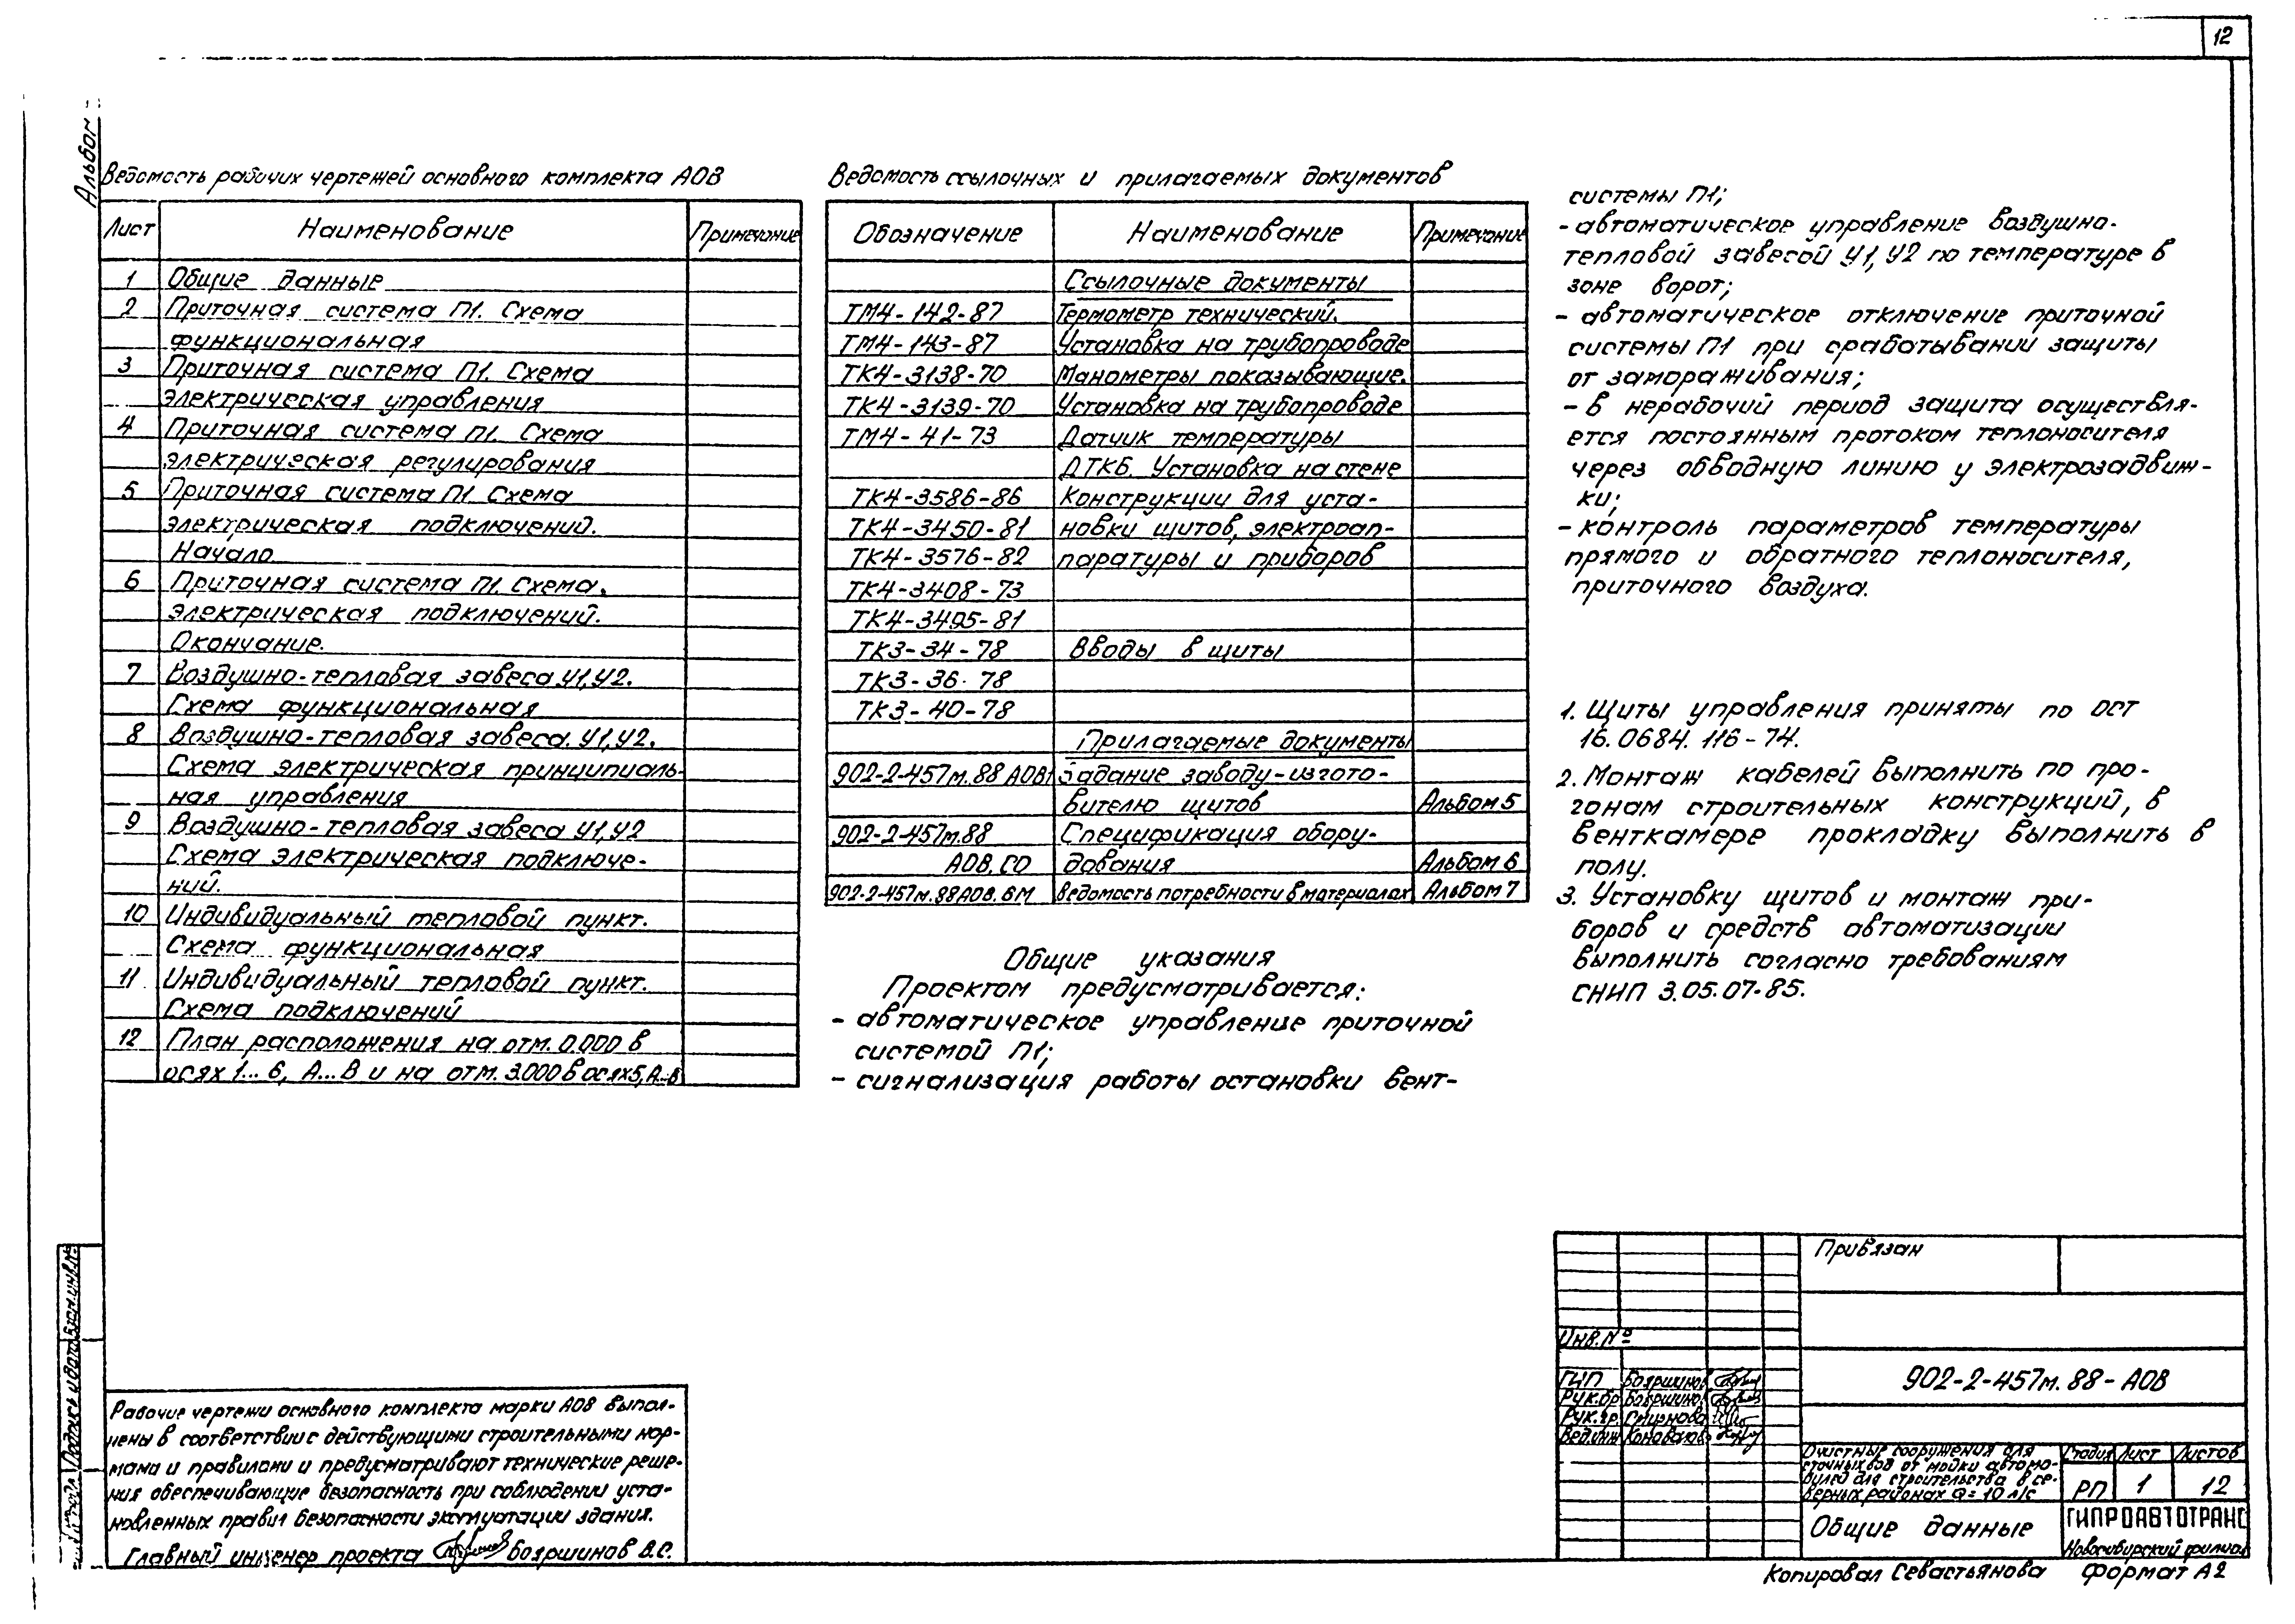 12
Альбом
Ведомость рабочих чертежей основного комплекта АОВ
Лист Наименование Примечание
1 Общие данные
2 Приточная система П1. Схема
функциональная
3 Приточная система П1. Схема
электрическая управления
4 Приточная система П1. Схема
электрическая регулирования
5 Приточная система П1 Схема
электрическая подключений.
Начало
6 Приточная система П1. Схема.
электрическая подключений.
Окончание.
7 Воздушно-тепловая завеса У1,У2.
Схема функциональная
8 Воздушно-тепловая завеса. У1,У2.
Схема электрическая принципиаль-
ная управления
9 Воздушно-тепловая завеса У1,У2
Схема электрическая подключе-
ний.
10 Индивидуальный тепловой пункт.
Схема функциональная
11 Индивидуальный тепловой пункт.
Схема подключений
12 План расположения на отм. 0.000 в
осях 1...6, А...В и на отм. 3.000 в осях 5, А...В
Ведомость ссылочных и прилагаемых документов
Обозначение Наименование Примечание
Ссылочные документы
ТМ4-142-87 Термометр технический.
ТМ4-143-87 Установка на трубопроводе
ТК4-3138-70 Манометры показывающие.
ТК4-3139-70 Установка на трубопроводе
ТМ4-41-73 Датчик температуры
ДТКБ. Установка на стене
ТК4-3586-86 Конструкции для уста-
ТК4-3450-81 новки щитов, электроап-
ТК4-3576-82 паратуры и приборов
ТК4-3408-73
ТК4-3495-81
ТК3-34-78 Вводы в щиты
ТК3-36-78
ТК3-40-78
Прилагаемые документы
902-2-457м.88 АОВ1 Задание заводу-изгото-
вителю щитов Альбом 5
902-2-457м.88 Спецификация обору-
АОВ.СО дования Альбом 6
902-2-457м.88 АОВ. ВМ Ведомость потребности в материалах Альбом 7
Общие указания
Проектом предусматривается:
- автоматическое управление приточной
системой П1;
- сигнализация работы остановки вент-
системы П1;
- автоматическое управление воздушно-
тепловой завесой У1, У2 по температуре в
зоне ворот;
- автоматическое отключение приточной
системы П1 при срабатывании защиты
от замораживания;
- в нерабочий период защита осуществля-
ется постоянным протоком теплоносителя
через обводную линию у электрозадвиж-
ки;
- контроль параметров температуры
прямого и обратного теплоносителя,
приточного воздуха.
1. Щиты управления приняты по ОСТ
16. 0684. 116-74.
2. Монтаж кабелей выполнить по про-
гонам строительных конструкций, в
венткамере прокладку выполнить в
полу.
3. Установку щитов и монтаж при-
боров и средств автоматизации
выполнить согласно требованиям
СНИП 3.05.07-85.
Рабочие чертежи основного комплекта марки АОВ выпол-
нены в соответствии с действующими строительными нор-
мами и правилами и предусматривают технические реше-
ния обеспечивающие безопасность при соблюдении уста-
новленных правил безопасности эксплуатации здания.
Главный инженер проекта Бояршинов В.С.
Подпись и дата Взам. инв. №
Привязан
Инв. №
ГИП Бояршинов
Рук.бр Бояршинов
Рук.гр. Смирнова
Вед.инж Коновалов
902-2-457м. 88-АОВ
Очистные сооружения для
сточных вод от мойки автомо-
билей для строительства в се-
верных районах Q=10 л/с
Стадия Лист Листов
РП 1 12
Общие данные
ГИПРОАВТОТРАНС
Новосибирский филиал
Копировал Севастьянова Формат А2